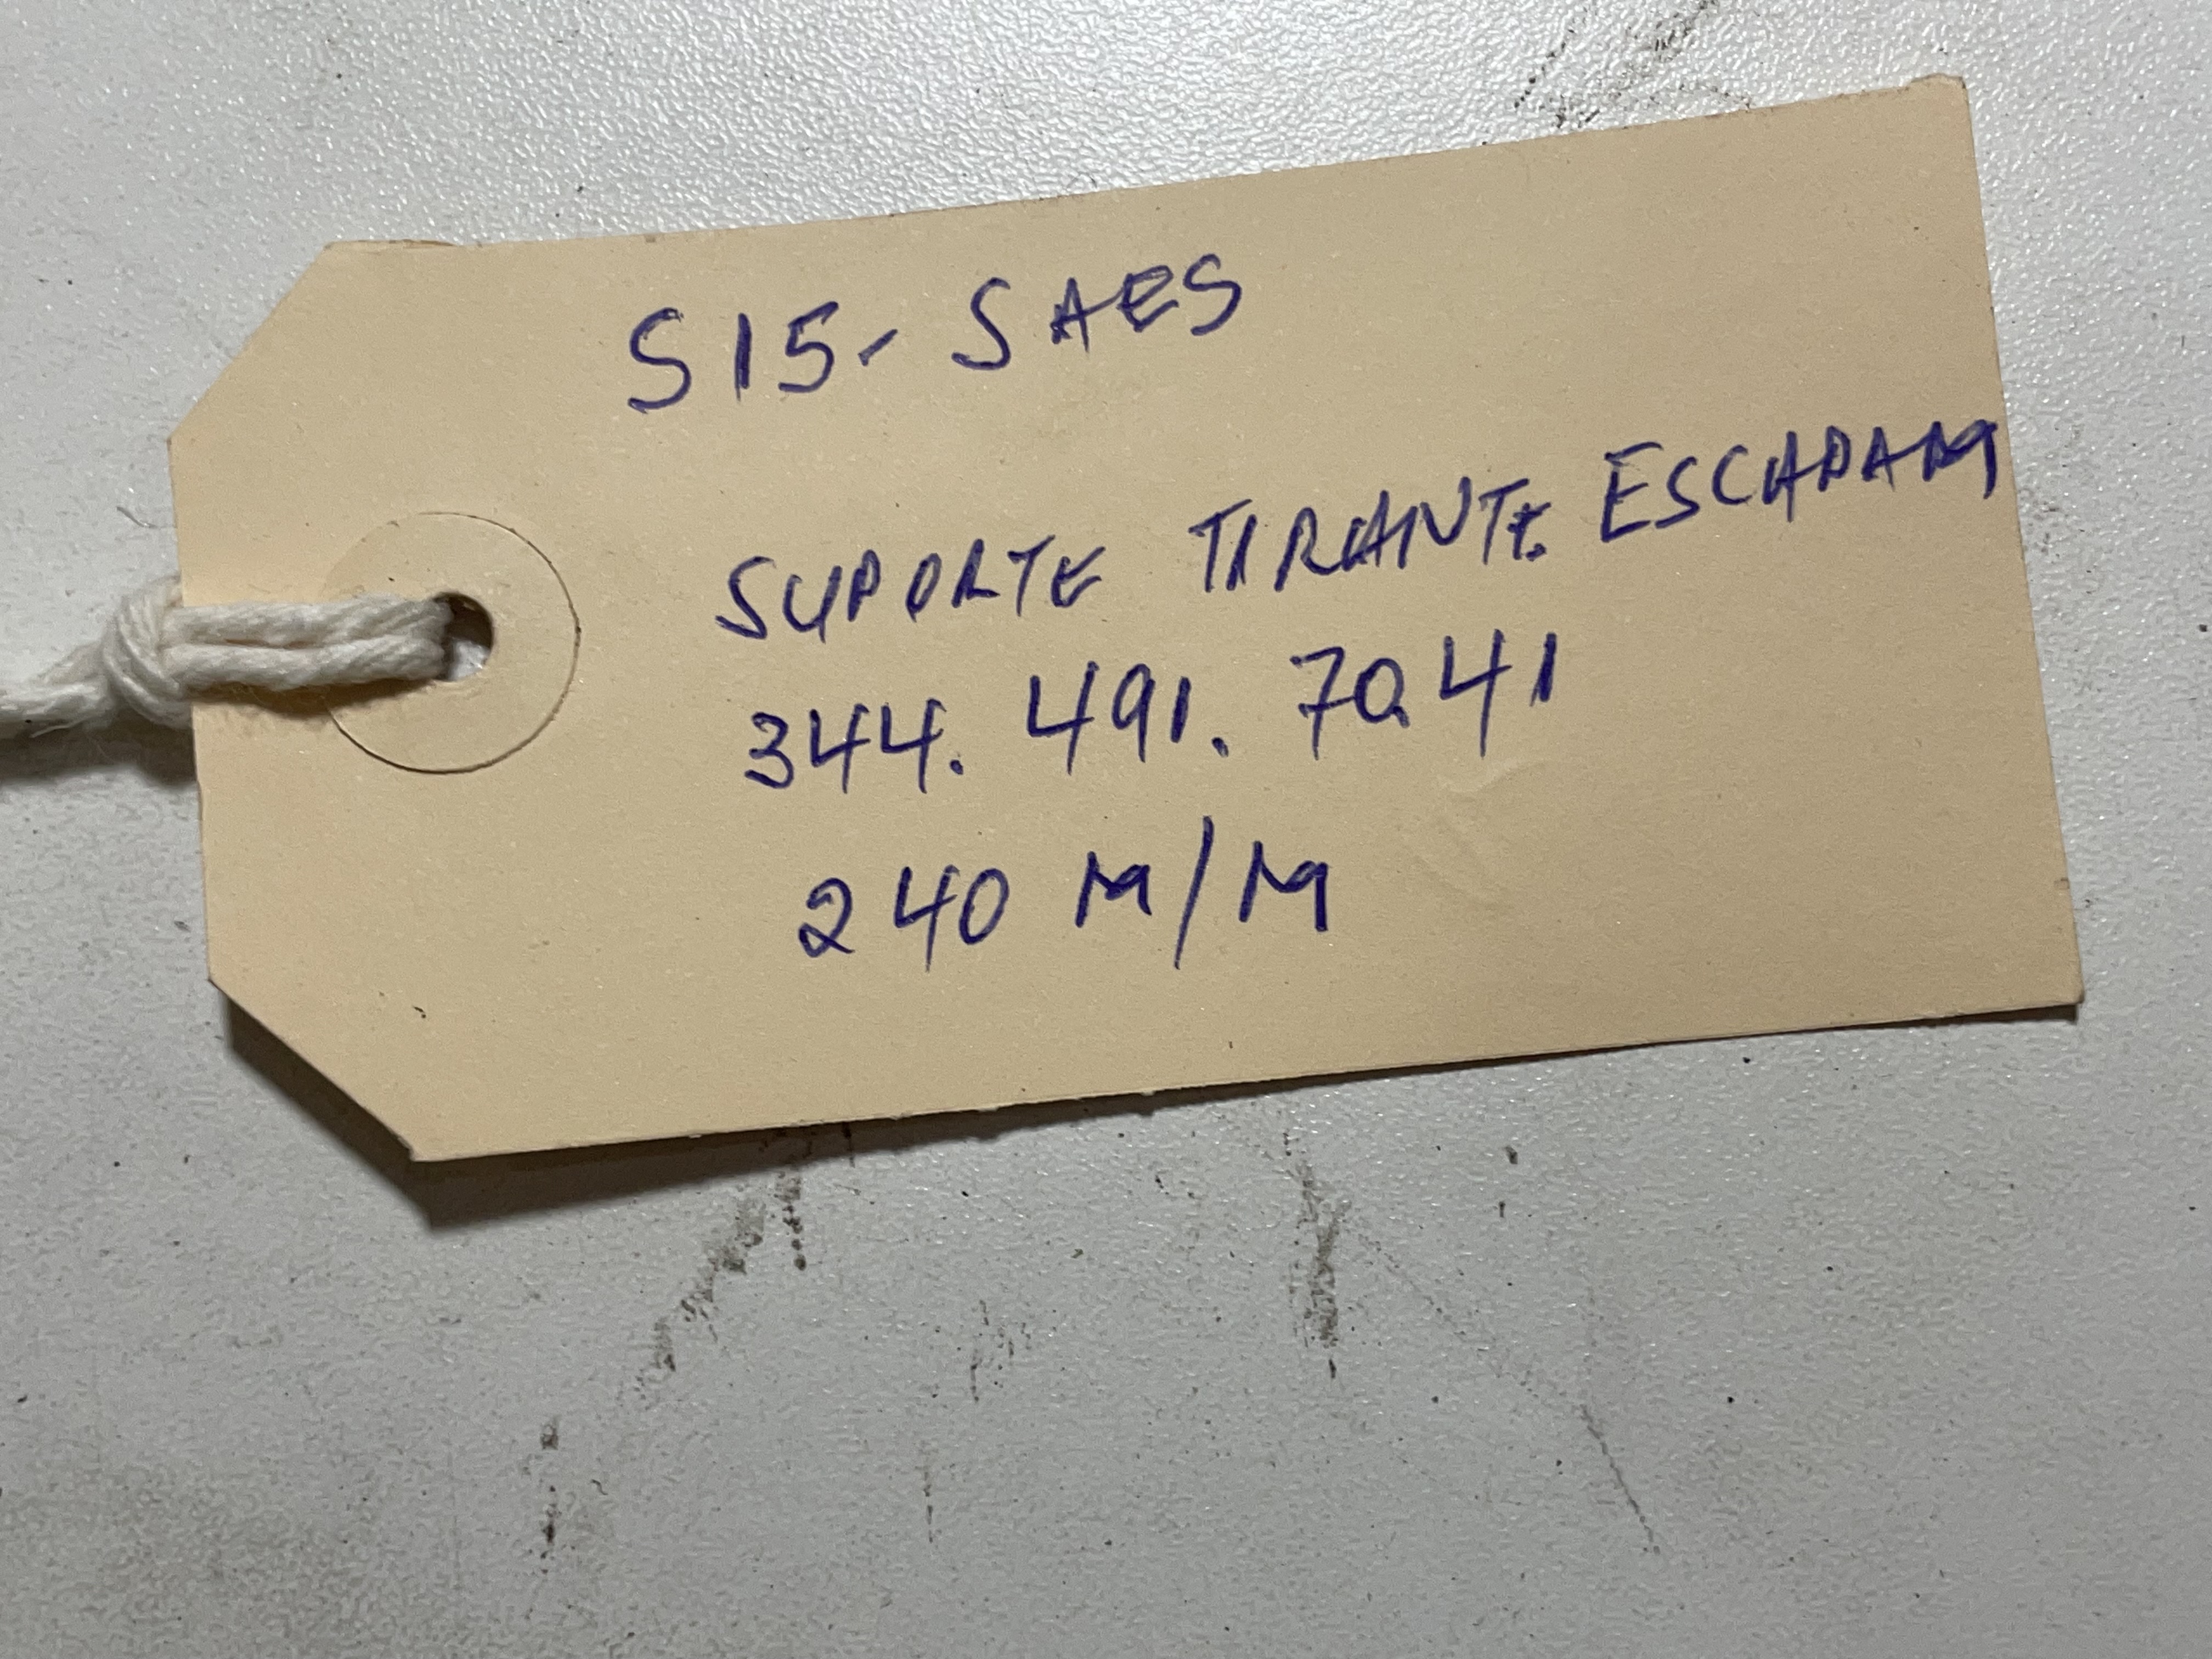 S15, SAES
SUPORTE TIRANTE ESCHPAM
344.491.7041
240 M/M